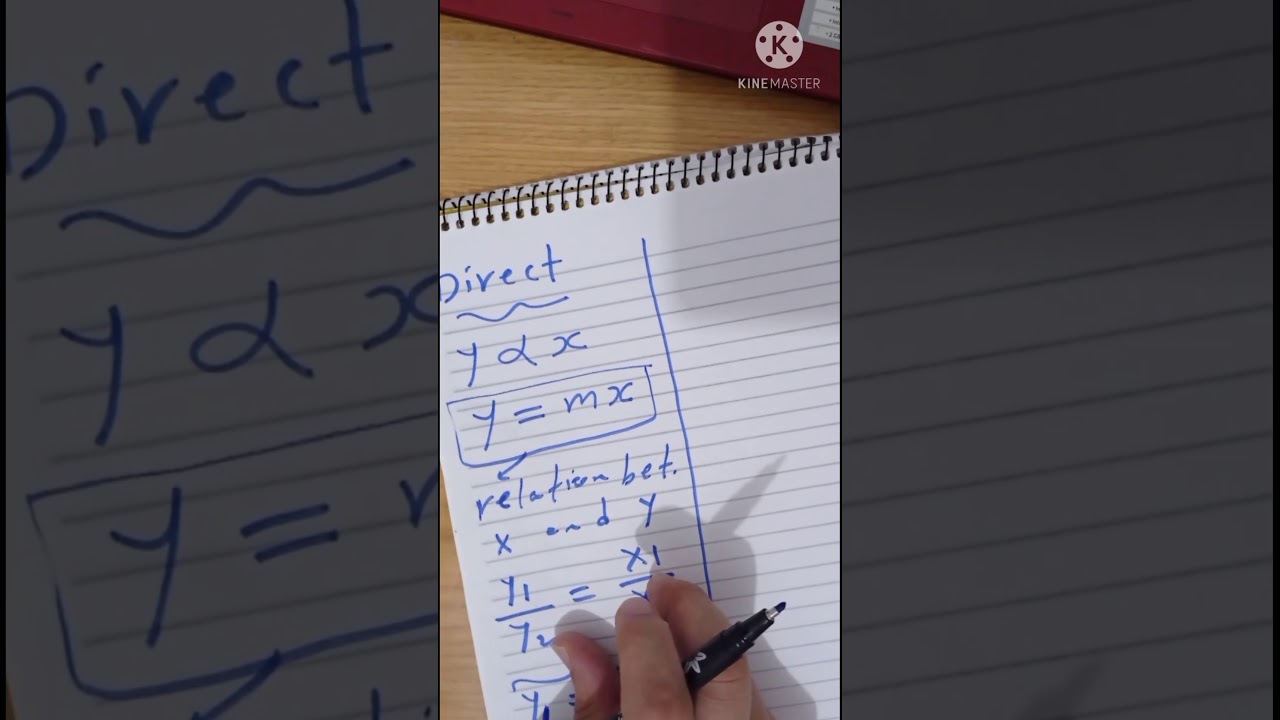 KINEMASTER
Direct
y ∝ x
y = mx
relation bet.
x and y
y1 = x1
y2
y1 =